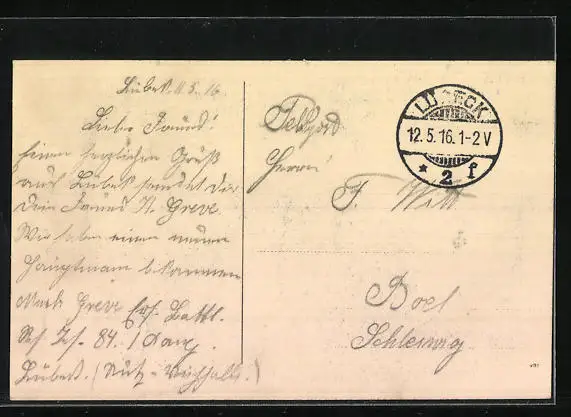 Lübeck 11.5.16.
Lieber Freund!
Einen herzlichen Gruß
aus Lübeck sendet dir
dein Freund H. Greve.
Wir haben einen neuen
Hauptmann bekommen
Musk Greve Batl.
84.
Lübeck.
Feldpost
Herrn
F. Witt
Boel
Schleswig
LÜBECK
12.5.16.1-2V
* 2 f